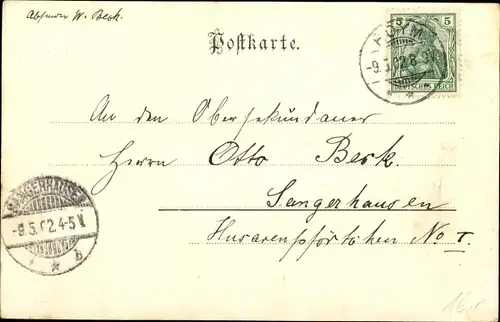 Absender W. Besk.
Postkarte.
5 5
DEUTSCHES REICH
-9.5.02.8-9V.
An den Obersekundaner
Herrn Otto Besk.
Sangerhausen
Husarenpförtchen No I.
SANGERHAUSEN
-9.5.02.4-5V.
* b